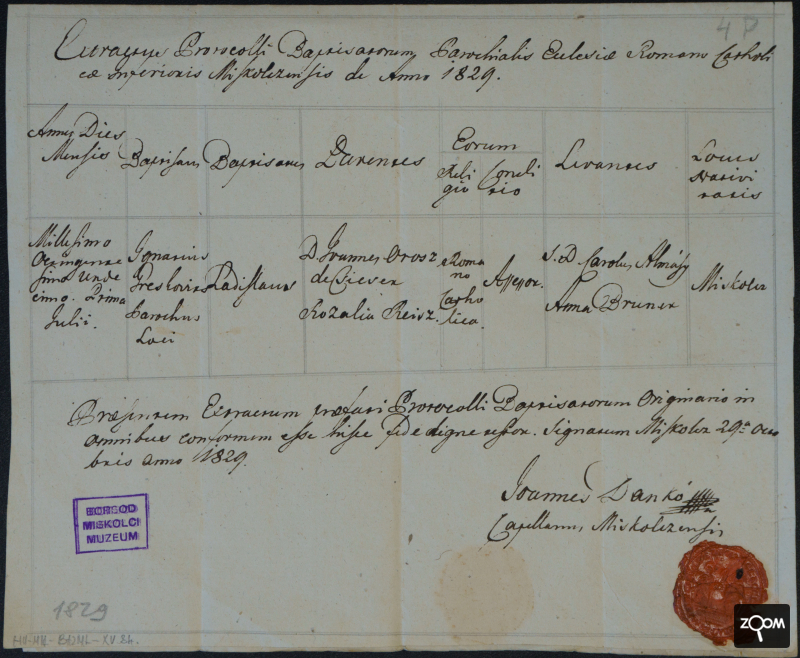 4 P
Extractus Protocolli Baptisatorum Parochialis Eclesiæ Romano Catholi
cæ Inferioris Miskolczensis de Anno 1829.
Annus Dies
Mensis
Baptisans
Baptisatus
Parentes
Eorum
Reli
gio
Condi
tio
Levantes
Locus
Nativi
tatis
Millesimo
Octingente
simo Unde
cimo. Prima
Julii.
Ignatius
Parochus
Loci
Ladislaus
D. Joannes Orosz
de Csicser
Rozalia Reisz.
Roma
no
Catho
lica.
Assessor.
S. D. Carolus Almásy
Anna Bruner
Miskolcz
Præsentem Extractum præfati Protocolli Baptisatorum Originario in
omnibus conformem esse hisce fide digne testor. Signatum Miskolcz 29a Octo
bris anno 1829.
Joannes Dankó
Capellanus Miskolczensis
BORSOD
MISKOLCI
MUZEUM
1829
ZOOM